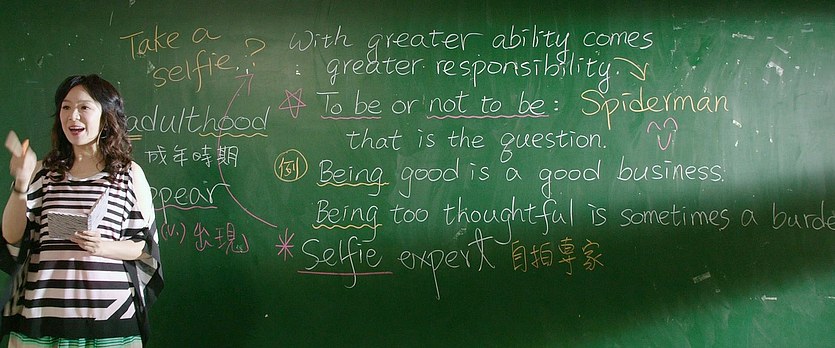 Take a
selfie.?
adulthood
成年時期
ppear
(v.) 出現
With greater ability comes
greater responsibility.
To be or not to be : Spiderman
that is the question.
例 Being good is a good business.
Being too thoughtful is sometimes a burde
Selfie expert 自拍專家